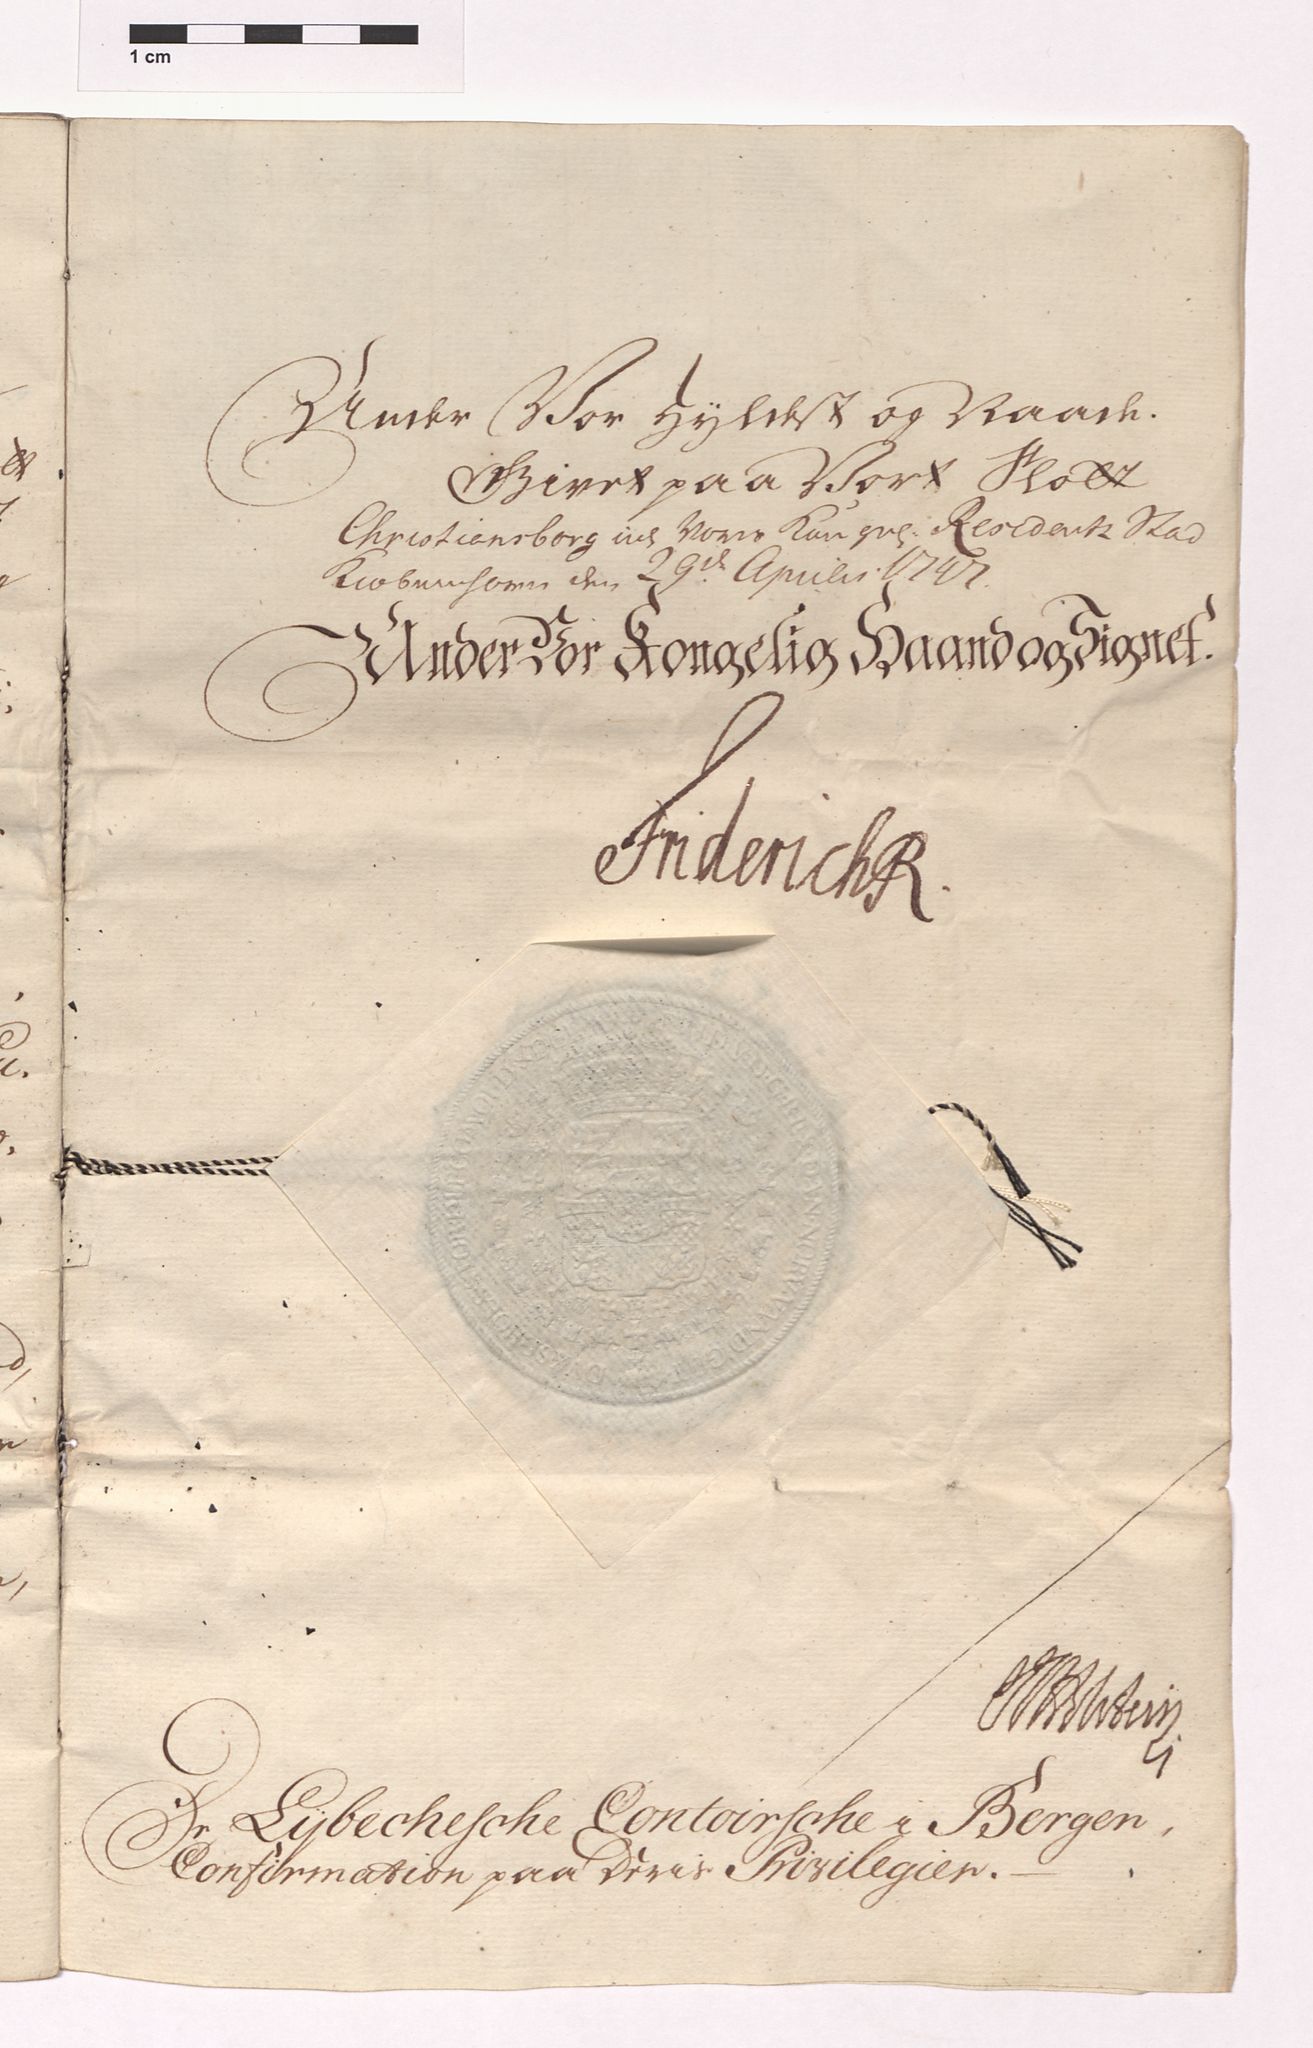 1 cm
Under Vor Hyldest og Naade.
Givet paa Vort Slott
Christiansborg udi Vores Kongel: Residentz Stad
Kiøbenhavn den 29de Aprilis. 1747.
Under Vor Kongelig Haand og Signet.
Friderich R.
De Lybechesche Contoirsche i Bergen,
Confirmation paa deris Privilegier.